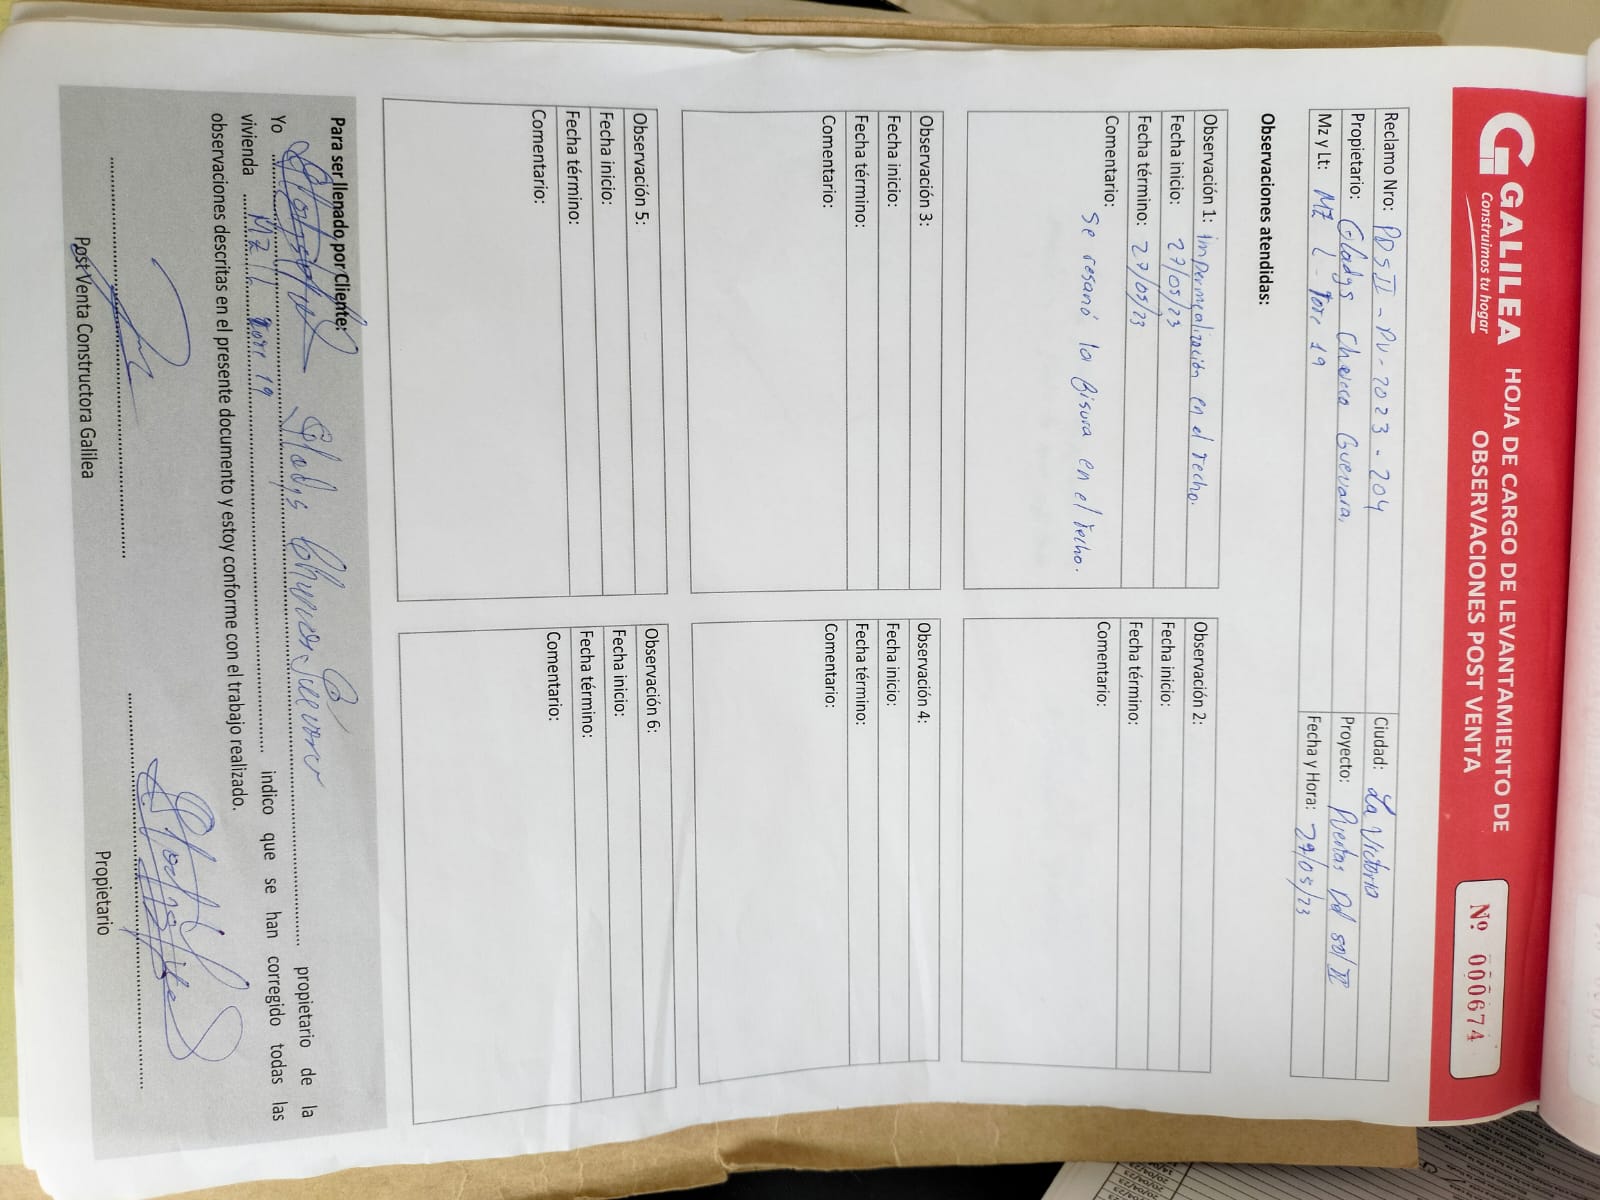 GALILEA
Construimos tu hogar
HOJA DE CARGO DE LEVANTAMIENTO DE
OBSERVACIONES POST VENTA
Nº 000674
Reclamo Nro: PDSII - PV - 2023 - 204
Ciudad: La Victoria
Propietario: Gladys Guevara.
Proyecto: Puertas Del sol II
Mz y Lt: MZ L - 19
Fecha y Hora: 27/05/23
Observaciones atendidas:
Observación 1: impermealización en el techo.
Fecha inicio: 27/05/23
Fecha término: 27/05/23
Comentario:
Se resanó la fisura en el techo.
Observación 2:
Fecha inicio:
Fecha término:
Comentario:
Observación 3:
Fecha inicio:
Fecha término:
Comentario:
Observación 4:
Fecha inicio:
Fecha término:
Comentario:
Observación 5:
Fecha inicio:
Fecha término:
Comentario:
Observación 6:
Fecha inicio:
Fecha término:
Comentario:
Para ser llenado por Cliente:
Yo Gladys propietario de la
vivienda MZ 19 indico que se han corregido todas las
observaciones descritas en el presente documento y estoy conforme con el trabajo realizado.
Post Venta Constructora Galilea
Propietario